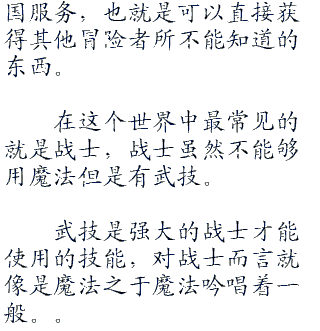 国服务，也就是可以直接获
得其他冒险者所不能知道的
东西。
在这个世界中最常见的
就是战士，战士虽然不能够
用魔法但是有武技。
武技是强大的战士才能
使用的技能，对战士而言就
像是魔法之于魔法吟唱着一
般。。